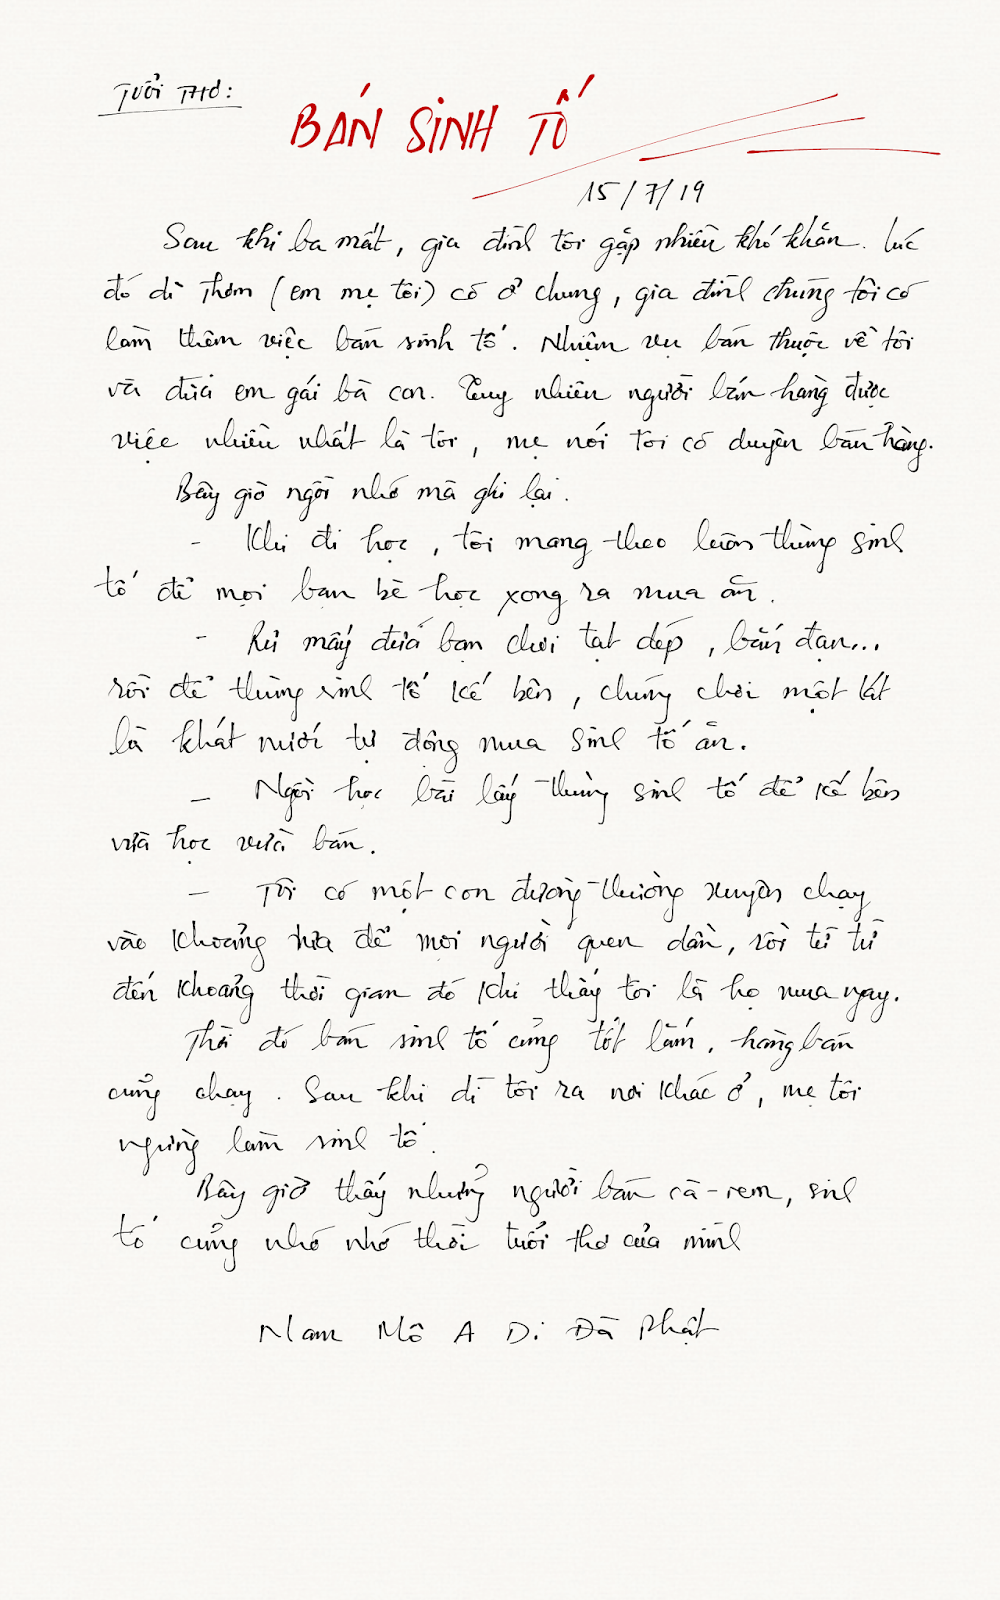 Tuổi Thơ:
BÁN SINH TỐ
15/7/19
Sau khi ba mất, gia đình tôi gặp nhiều khó khăn. Lúc
đó dì Thơm (em mẹ tôi) có ở chung, gia đình chúng tôi có
làm thêm việc bán sinh tố. Nhiệm vụ bán thuộc về tôi
và đứa em gái bà con. Tuy nhiên người bán hàng được
việc nhiều nhất là tôi, mẹ nói tôi có duyên bán hàng.
Bây giờ ngồi nhớ mà ghi lại.
- Khi đi học, tôi mang theo luôn thùng sinh
tố để mọi bạn bè học xong ra mua ăn.
- Rủ mấy đứa bạn chơi tạt dép, bắn đạn...
rồi để thùng sinh tố kế bên, chúng chơi một lát
là khát nước tự động mua sinh tố ăn.
- Ngồi học bài lấy thùng sinh tố để kế bên
vừa học vừa bán.
- Tôi có một con đường thường xuyên chạy
vào khoảng trưa để mọi người quen dần, rồi từ từ
đến khoảng thời gian đó khi thấy tôi là họ mua ngay.
Thời đó bán sinh tố cũng tốt lắm, hàng bán
cũng chạy. Sau khi dì tôi ra nơi khác ở, mẹ tôi
ngừng làm sinh tố.
Bây giờ thấy những người bán cà-rem, sinh
tố cũng nhớ nhớ thời tuổi thơ của mình
Nam Mô A Di Đà Phật